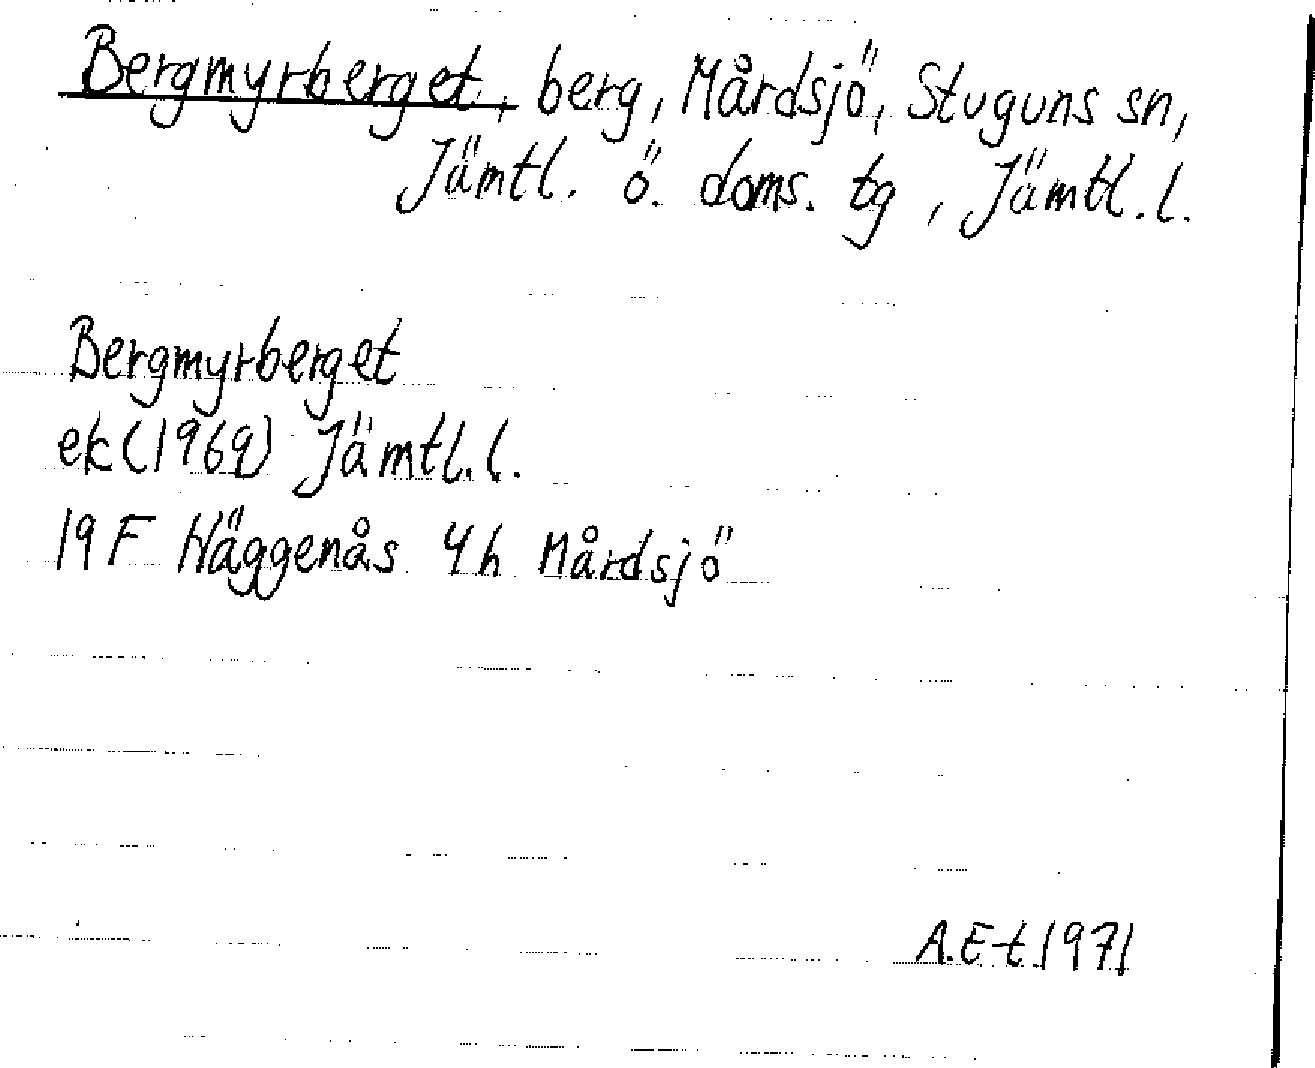 Bergmyrberget, berg, Mårdsjö, Stuguns sn,
Jämtl. ö. doms. tg, Jämtl. l.
Bergmyrberget
ek (1969) Jämtl. l.
19 F Häggenås 4h Mårdsjö
A.E-t 1971